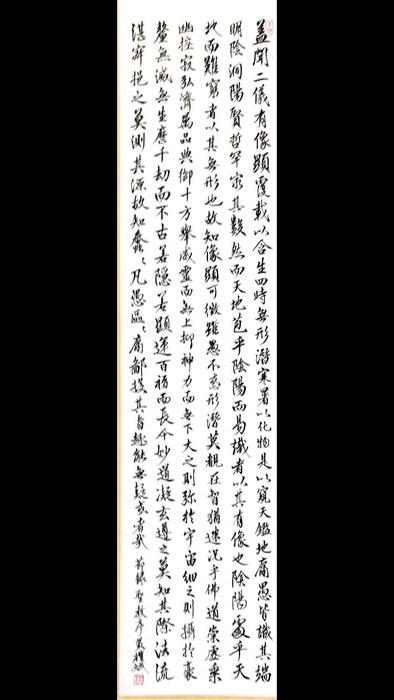 蓋聞二儀有像顯覆載以含生四時無形潛寒暑以化物是以窺天鑑地庸愚皆識其端
明陰洞陽賢哲罕窮其數然而天地苞乎陰陽而易識者以其有像也陰陽處乎天
地而難窮者以其無形也故知像顯可徵雖愚不惑形潛莫覩在智猶迷況乎佛道崇虛乘
幽控寂弘濟萬品典御十方舉威靈而無上抑神力而無下大之則彌於宇宙細之則攝於毫
釐無滅無生歷千劫而不古若隱若顯運百福而長今妙道凝玄遵之莫知其際法流
湛寂挹之莫測其源故知蠢〻凡愚區〻庸鄙投其旨趣能無疑或者哉 節錄聖教序